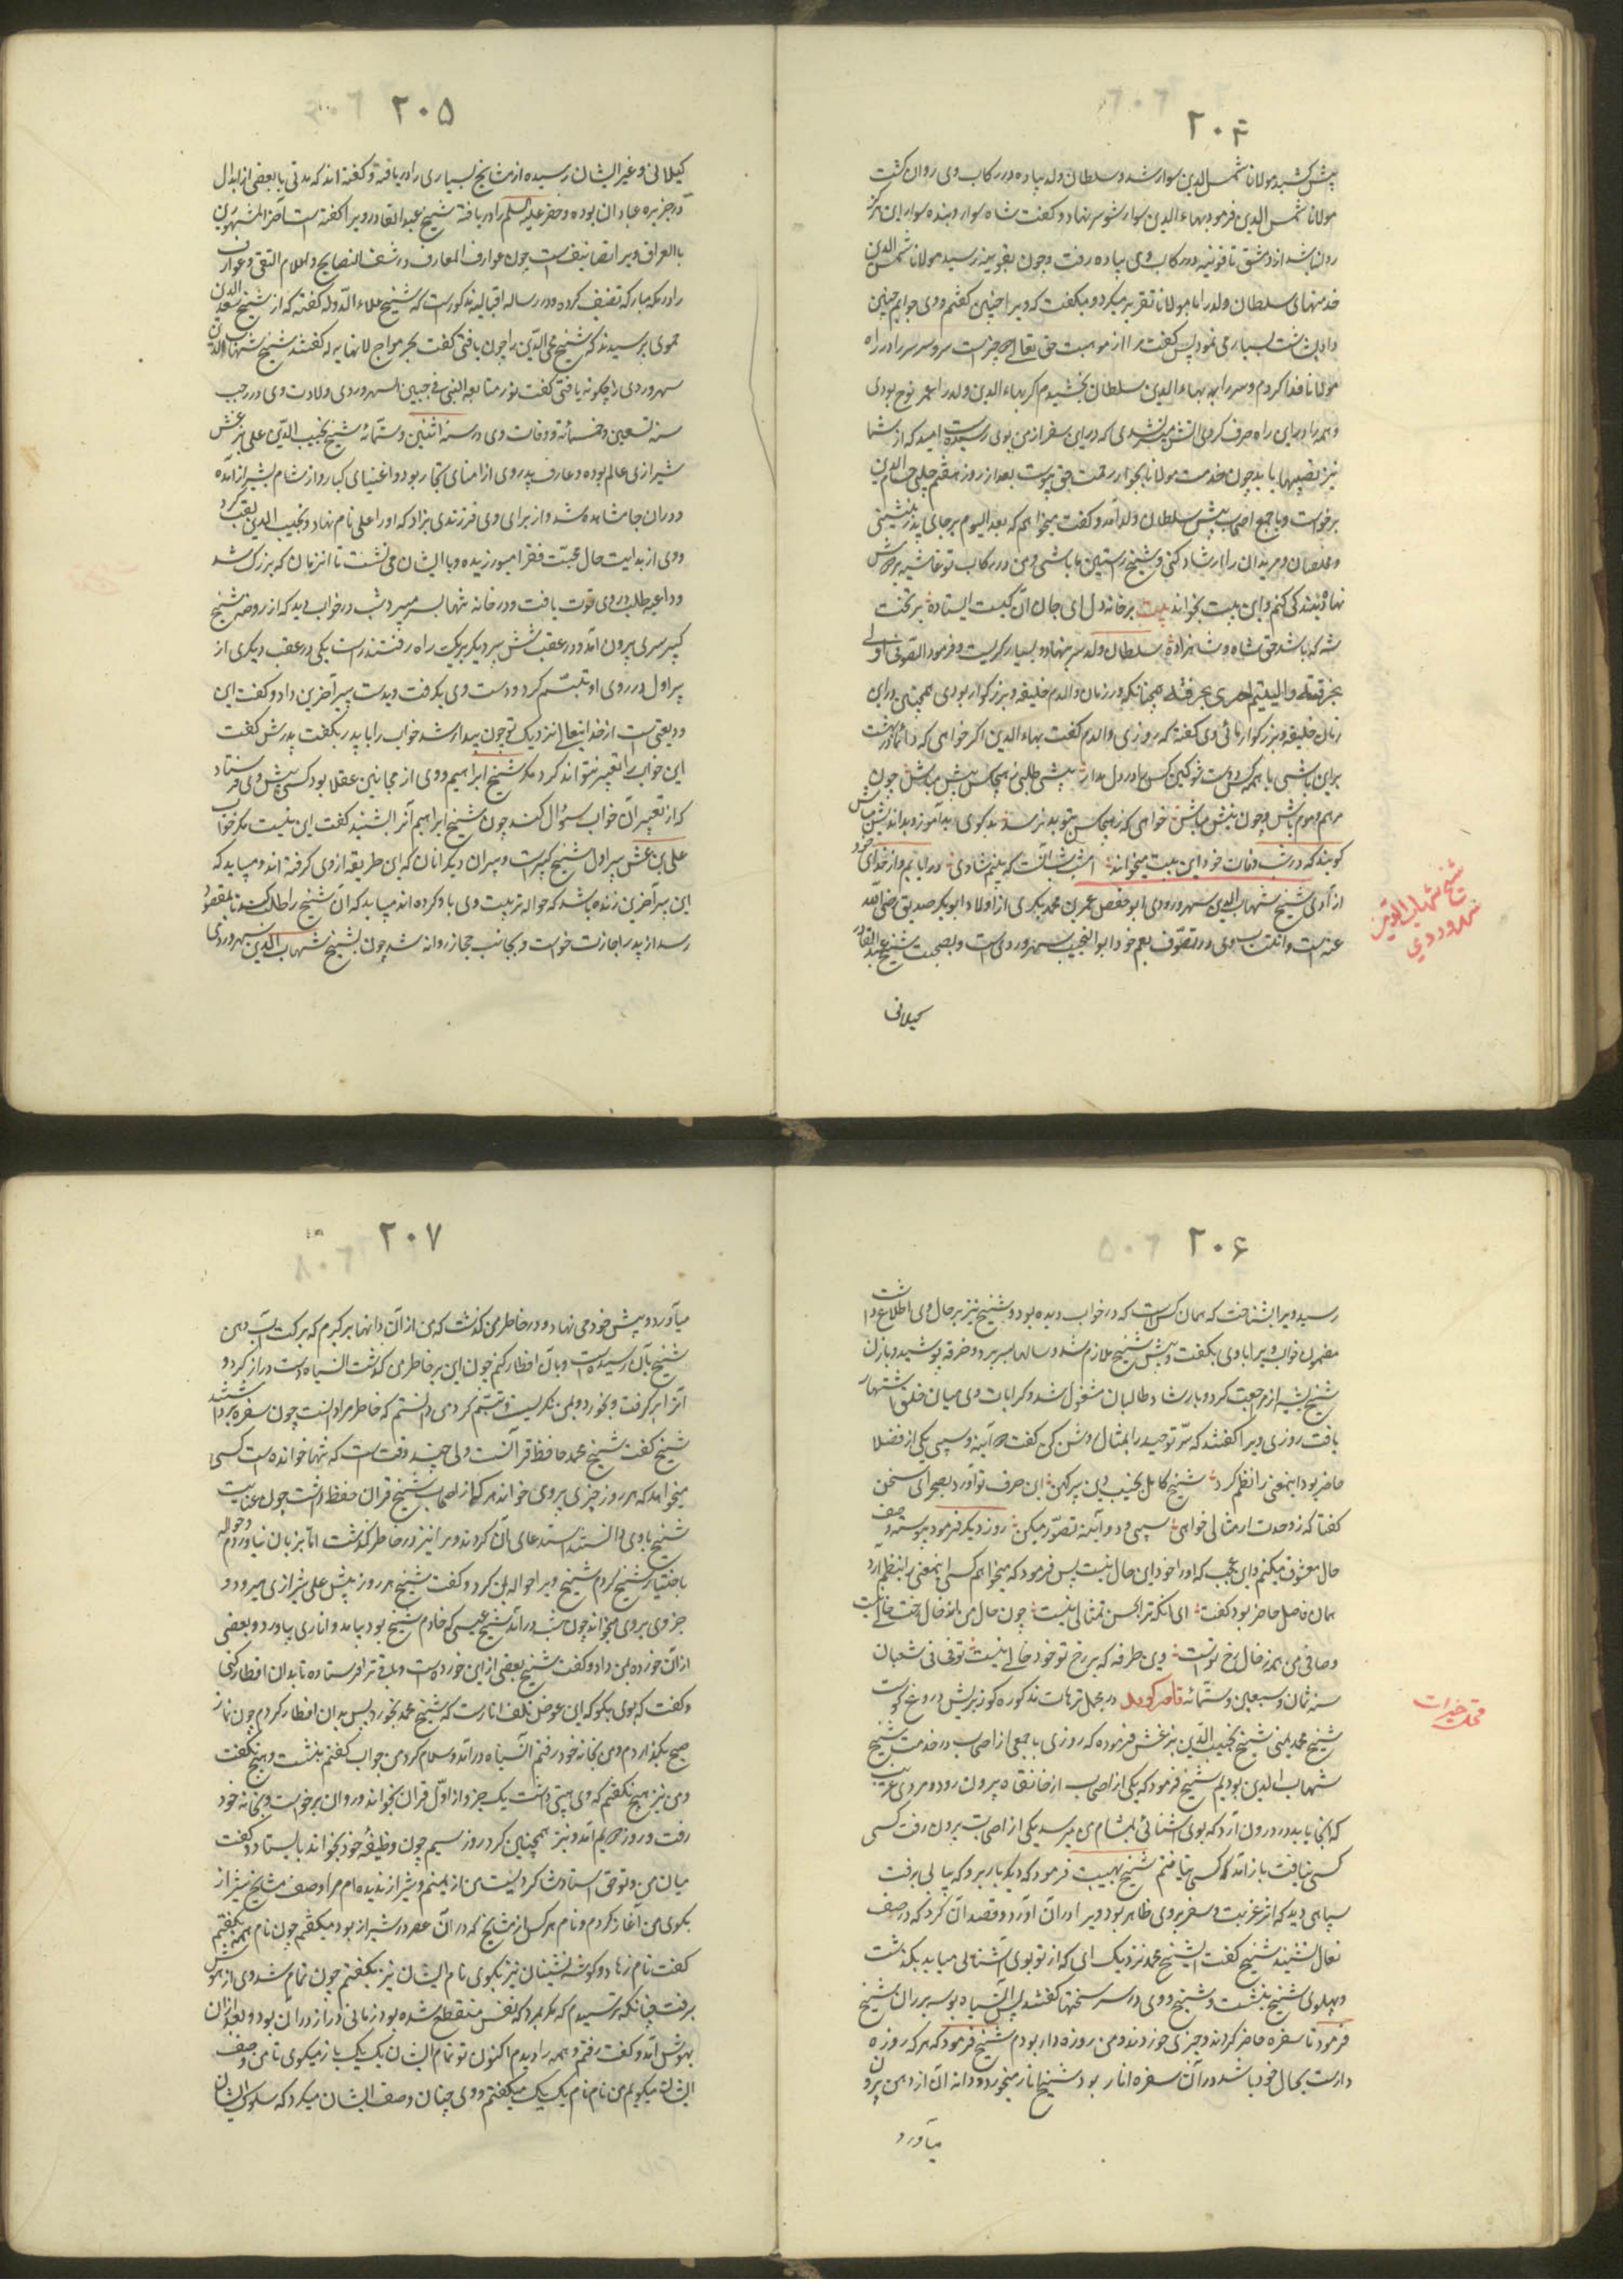 ۲۰۴
پیش کشید مولانا شمس الدین سوار شد و سلطان ولد پیاده در رکاب وی روان گشت
مولانا شمس الدین فرمود بهاء الدین سوار شو سر نهاد و گفت شاه سوار و بنده سوار این هرگز
روا نباشد از دمشق تا قونیه در رکاب وی پیاده رفت و چون بقونیه رسید مولانا شمس الدین
خدمتهای سلطان ولد را با مولانا تقریر میکرد و میگفت که ویرا چنین گفتم و وی جوابم چنین
داد بشاشت بسیار می نمود پس گفت مرا از موهبت حق تعالی دو چیز است سر و سر سر را در راه
مولانا فدا کردم و سر را به بهاء الدین سلطان بخشیدم اگر بهاء الدین ولد را عمر نوح بودی
و همه را درین راه صرف کردی آتش میسر نشدی که درین سفر از من بوی رسیده است امید که از شما
نیز نصیبها یابد چون خدمت مولانا بجوار رحمت حق پیوست بعد از روز هفتم چلبی حسام الدین
برخاست و با جمع اصحاب پیش سلطان ولد آمد و گفت میخواهم که بعد الیوم بر جای پدر بنشینی
و مخلصان و مریدان را ارشاد کنی و شیخ راستین ما باشی و من در رکاب تو غاشیه بر دوش
نهاده بندگی کنم و این بیت بخواند بیت بر خانه دل ای جان آن کیست ایستاده بر تخت
شه که باشد حق شاه و شاهزاده سلطان ولد سر بنهاد و بسیار گریست و فرمود الصوفی اولی
بخرقته والیتیم احری بحرقته همچنانکه در زمان والدم خلیفه و بزرگوار بودی همچنین درین
زمان خلیفه و بزرگوار مائی وی گفته که روزی والدم گفت بهاء الدین اگر خواهی که دائما در بهشت
برین باشی با همه کس دوست شو کین کس را در دل مدار پیشی طلبی ز هیچکس پیش مباش چون
مرهم و موم باش و چون نیش مباش خواهی که ز هیچکس بتو بد نرسد بدگوی و بدآموز و بداندیش مباش
گویند که در شب وفات خود این بیت میخواند امشب شب آنست که بینم شادی دریابم از خدای خود
آزادی شیخ شهاب الدین سهروردی ابو حفص عمر بن محمد بکری از اولاد ابوبکر صدیق رضی الله
عنه است و انتساب وی در تصوف بعم خود ابو النجیب سهروردی است و بصحبت شیخ عبدالقادر
گیلانی
شیخ شهاب الدین
سهروردی
۲۰۵
گیلانی و غیر ایشان رسیده از مشایخ بسیاری را دریافته و گفته اند که مدتی با بعضی از ابدال
در جزیره عبادان بوده و خضر علیه السلم را دریافته شیخ عبدالقادر ویرا گفته است آخر المشهورین
بالعراق ویرا تصانیف است چون عوارف المعارف و رشف النصایح و اعلام التقی و عوارف
را در مکه مبارکه تصنیف کرده و در رساله اقبالیه مذکور است که شیخ علاء الدوله گفته که از شیخ سعد الدین
حموی پرسیدند که شیخ محی الدین را چون یافتی گفت بحر مواج لا نهایه له گفتند شیخ شهاب الدین
سهروردی را چگونه یافتی گفت نور متابعة النبی فی جبین السهروردی ولادت وی در رجب
سنه تسعین و خمسمائة و وفات وی در سنه اثنین و ستمائه شیخ نجیب الدین علی بزغش
شیرازی عالم بوده و عارف پدر وی از امنای تجار بود و اغنیای کبار و از شام بشیراز آمده
و دران جا متاهل شد و از برای وی فرزندی بزاد که او را علی نام نهاد و نجیب الدین لقب کرد
و وی از بدایت حال محبت فقرا میورزیده و با ایشان می نشست تا انزمان که بزرگ شد
و داعیه طلب در وی قوت یافت و در خانه تنها بسر میبرد شب در خواب دید که از روضه شیخ
کبیر پیری بیرون آمد و در عقب شش پیر دیگر بر یک راه رفتند راست یکی در عقب دیگری از
پیر اول در روی او تبسم کرد و دست وی بگرفت و بدست پیر آخرین داد و گفت این
ودیعتی ست از خدایتعالی نزدیک تو چون بیدار شد خواب را با پدر بگفت پدرش گفت
این خواب را تعبیر نتواند کرد مگر شیخ ابراهیم و وی از مجانین عقلا بود کسی پیش وی فرستاد
که از تعبیر آن خواب سؤال کند چون شیخ ابراهیم آنرا بشنید گفت این نیست مگر خواب
علی بن غش پیر اول شیخ کبیر است و پیران دیگر آنان که این طریقه از وی گرفته اند و میباید که
این پیر آخرین زنده باشد که حواله تربیت وی باو کرده اند میباید که آن شیخ را طلب کند تا بمقصود
رسد از پدر اجازت خواست و بجانب حجاز روانه شد چون بشیخ شهاب الدین سهروردی
۲۰۶
رسید ویرا بشناخت که همان کس است که در خواب دیده بود و شیخ نیز بر حال وی اطلاع داشت
مضمون خواب ویرا باوی بگفت و پیش شیخ ملازم شد و سالها بسر برد و خرقه پوشید و باذن
شیخ بشیراز مراجعت کرد و بارشاد طالبان مشغول شد و کرامات وی میان خلق اشتهار
یافت روزی ویرا گفتند که سر توحید را بمثال روشن کن گفت دو آینه و سیبی یکی از فضلا
حاضر بود اینمعنی را نظم کرد شیخ کامل نجیب دین پیر کهن این حرف نو آورد بصحرای سخن
گفتا که ز وحدت ار مثالی خواهی سیبی و دو آینه تصور میکن روز دیگر فرمود پیوسته وصف
حال معشوق میکنم و این عجب که او را خود این حال نیست پس فرمود که میخواهم کسی اینمعنی را بنظم آرد
همان فاضل حاضر بود گفت ای آنکه ترا بحسن تمثالی نیست چون حال من از خال رخت خالی نیست
وصافی من همه ز خال رخ تو است وین طرفه که بر رخ تو خود خالی نیست توفی فی شعبان
سنه ثمان و سبعین و ستمائه در مجمل ترهات مذکوره کوز برش دروغ کوست
شیخ محمد یمنی شیخ نجیب الدین بزغش فرموده که روزی با جمعی از اصحاب در خدمت شیخ
شهاب الدین بودیم شیخ فرمود که یکی از اصحاب از خانقاه بیرون رود و مردی غریب
که آنجا یابد درون آرد که بوی آشنائی بمشام من میرسد یکی از اصحاب بیرون رفت کسی
کسی نیافت باز آمد که کسی نیافتم شیخ بهیبت فرمود که دیگر بار برو که بیابی برفت
سیاهی دید که اثر غربت و سفر بر وی ظاهر بود ویرا در آن آورد و قصد آن کرد که در صف
نعال نشیند شیخ گفت ای شیخ محمد نزدیک آی که از تو بوی آشنائی میاید بگذشت
و پهلوی شیخ بنشست و شیخ و وی در سر سخنها گفتند پس آن سیاه بوسه بر ران شیخ
فرمود تا سفره حاضر کردند و چیزی خوردند و من روزه دار بودم شیخ فرمود که هر که روزه
دارست بحال خود باشد در آن سفره انار بود شیخ انار میخورد و دانه آن از دهن بیرون
میآورد
۲۰۷
میآورد و پیش خود می نهاد و در خاطر من گذشت که من از آن دانها بر گیرم که برکت آب دهن
شیخ بآن رسیده است و بآن افطار کنم چون این بر خاطر من گذشت آن سیاه دست دراز کرد و
آنرا بر گرفت و بخورد و بمن نگریست و تبسم کرد من دانستم که خاطر مرا دانست چون سفره برداشتند
شیخ گفت شیخ محمد حافظ قرآنست ولی چند وقت است که تنها خوانده است کسی
میخواهد که هر روز چیزی بر وی خواند هر که از اصحاب شیخ قران حفظ داشت چون عنایت
شیخ باوی دانستند استدعای آن کردند و مرا نیز در خاطر گذشت اما بزبان نیاوردم و حواله
باختیار شیخ کردم شیخ ویرا حواله بمن کرد و گفت شیخ هر روز پیش علی شیرازی میرود و
جزوی بر وی میخواند چون شب در آمد شیخ عیسی که خادم شیخ بود بیامد و اناری بیاورد و بعضی
از آن خورده بمن داد و گفت شیخ بعضی از این خورده است و باقی ترا فرستاده تا بدان افطار کنی
و گفت که بوی بگو که این عوض ثلف انارست که شیخ محمد بخورد پس بدان افطار کردم چون نماز
صبح بگذاردم و من بخانه خود رفتم آن سیاه در آمد و سلام کرد من جواب گفتم بنشست و هیچ نگفت
و من نیز هیچ نگفتم که وی هیبتی داشت یک جزو از اول قران بخواند و روان برخواست و بخانه خود
رفت و روز دویم آمد و نیز همچنین کرد روز سیم چون وظیفه خود بخواند بایستاد و گفت
میان من و تو حق استاد و شاگردیست من از یمنم و شیراز ندیده ام مرا وصف مشایخ شیراز
بگوی من آغاز کردم و نام هر کس از مشایخ که در آن عصر در شیراز بود میگفتم چون نام همه بگفتم
گفت نام زهاد و گوشه نشینان نیز بگوی نام ایشان نیز بگفتم چون تمام شد وی از هوش
برفت چنانکه ترسیدم که مگر بمرد که نفس منقطع شده بود زمانی دراز در آن بود و بعد از آن
بهوش آمد و گفت رفتم و همه را دیدم اکنون تو نام ایشان یک یک باز میگوی تا من وصف
ایشان میگویم من نام نام یک یک میگفتم و وی چنان وصف ایشان میکرد که سلوک ایشان